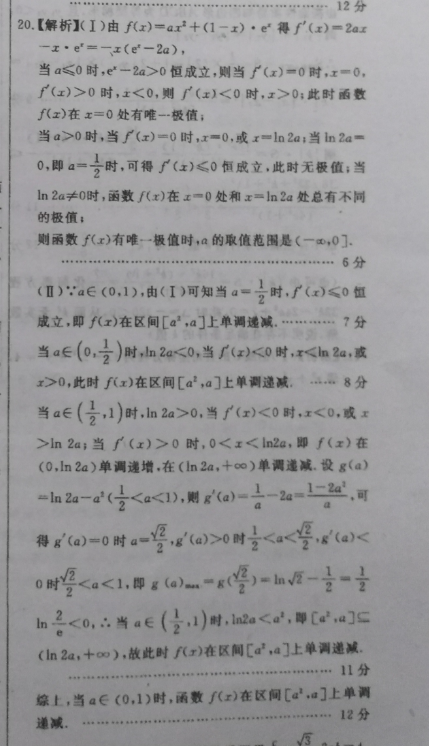 12分
20.【解析】(Ⅰ)由 f(x)=ax²+(1-x)·eˣ 得 f′(x)=2ax
-x·eˣ=-x(eˣ-2a),
当 a≤0 时,eˣ-2a>0 恒成立,则当 f′(x)=0 时,x=0,
f′(x)>0 时,x<0,则 f′(x)<0 时,x>0;此时函数
f(x)在 x=0 处有唯一极值;
当 a>0 时,当 f′(x)=0 时,x=0,或 x=ln 2a;当 ln 2a=
0,即 a=1/2时,可得 f′(x)≤0 恒成立,此时无极值;当
ln 2a≠0时,函数 f(x)在 x=0 处和 x=ln 2a 处总有不同
的极值;
则函数 f(x)有唯一极值时,a 的取值范围是(-∞,0].
6分
(Ⅱ)∵a∈(0,1),由(Ⅰ)可知当 a=1/2时,f′(x)≤0 恒
成立,即 f(x)在区间[a²,a]上单调递减. ………… 7分
当 a∈(0,1/2)时,ln 2a<0,当 f′(x)<0 时,x<ln 2a,或
x>0,此时 f(x)在区间[a²,a]上单调递减. …… 8分
当 a∈(1/2,1)时,ln 2a>0,当 f′(x)<0 时,x<0,或 x
>ln 2a;当 f′(x)>0 时,0<x<ln2a,即 f(x)在
(0,ln 2a)单调递增,在(ln 2a,+∞)单调递减.设 g(a)
=ln 2a-a²(1/2<a<1),则 g′(a)=1/a-2a=(1-2a²)/a,可
得 g′(a)=0 时 a=√2/2,g′(a)>0 时1/2<a<√2/2,g′(a)<
0 时√2/2<a<1,即 g(a)max=g(√2/2)=ln√2-1/2=1/2
ln 2/e<0,∴当 a∈(1/2,1)时,ln2a<a²,即[a²,a]⊆
(ln 2a,+∞),故此时 f(x)在区间[a²,a]上单调递减.
11分
综上,当 a∈(0,1)时,函数 f(x)在区间[a²,a]上单调
递减. ………… 12分